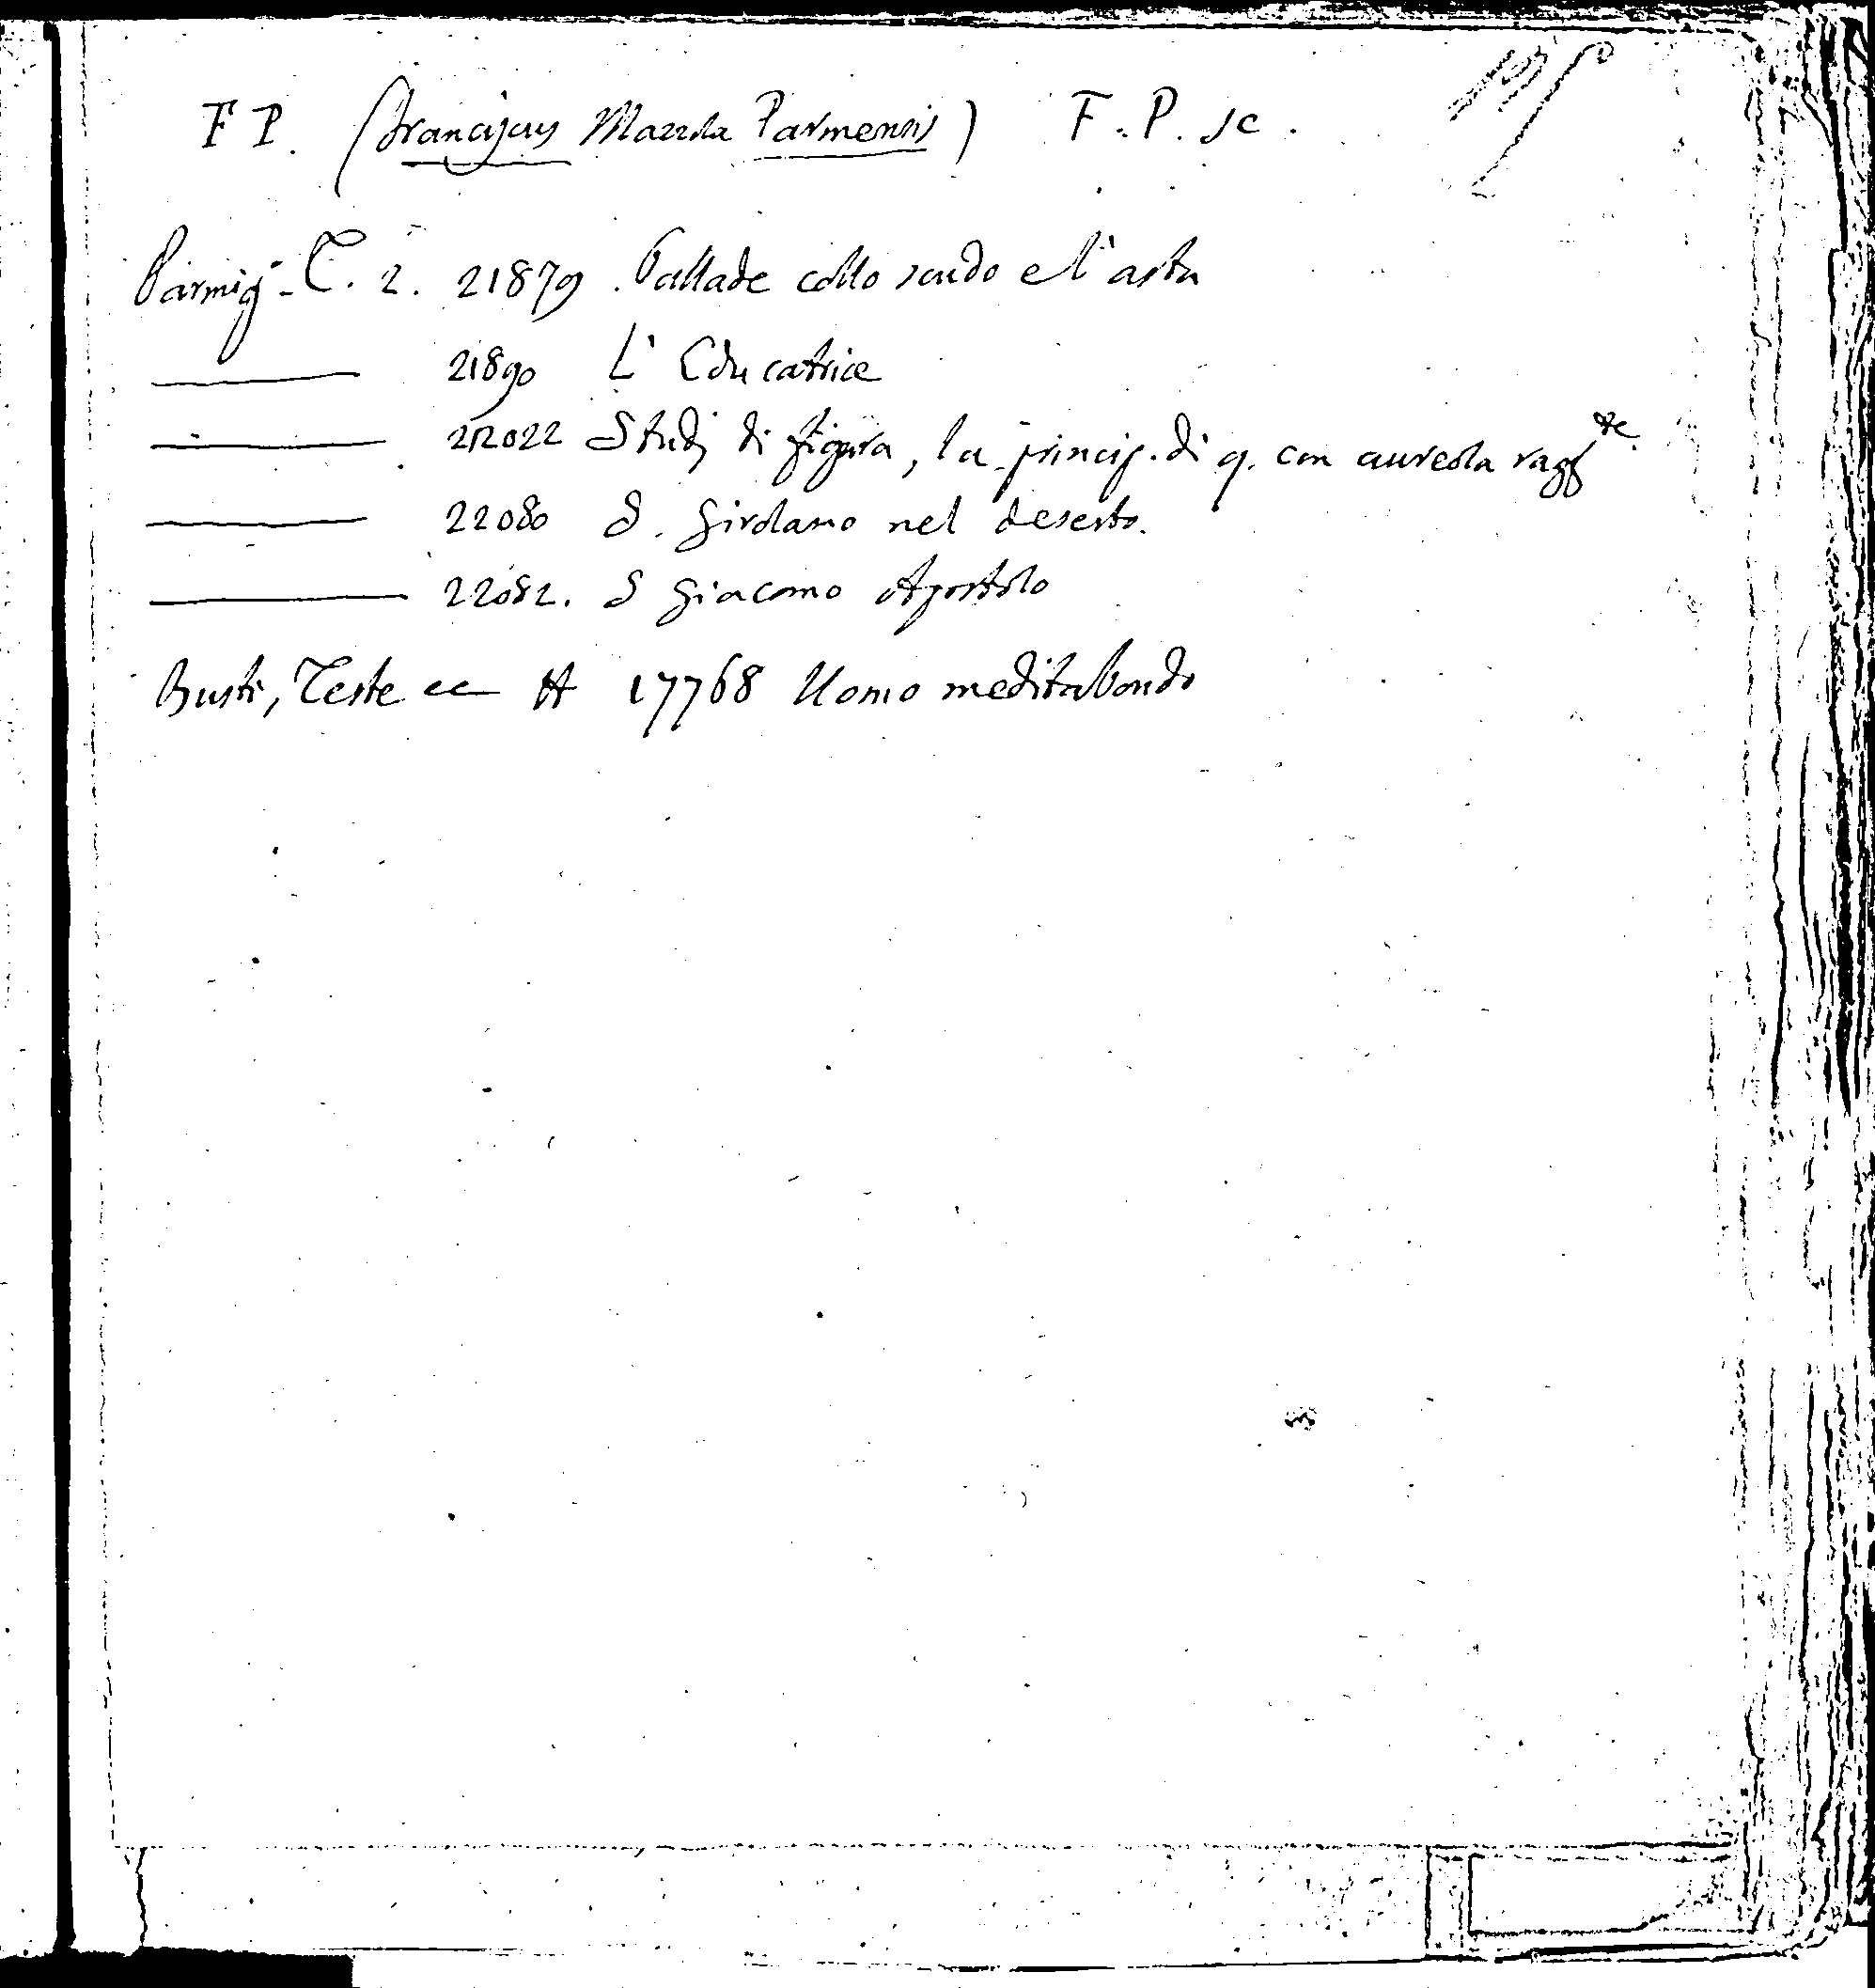 F P. (Franciscus Mazzola Parmensis) F. P. sc.
Parmig. T. 2. 21879. Pallade collo scudo e l'asta
21890 L'Educatrice
22022 Studj di figura, la princip. di q. con aureola
22080 S. Girolamo nel deserto.
22082. S Giacomo Apostolo
Busti, Teste ec A 17768 Uomo meditabondo